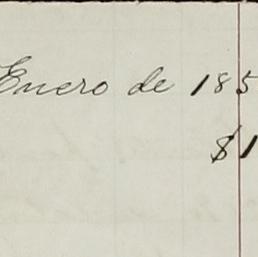 Enero de 185
$1